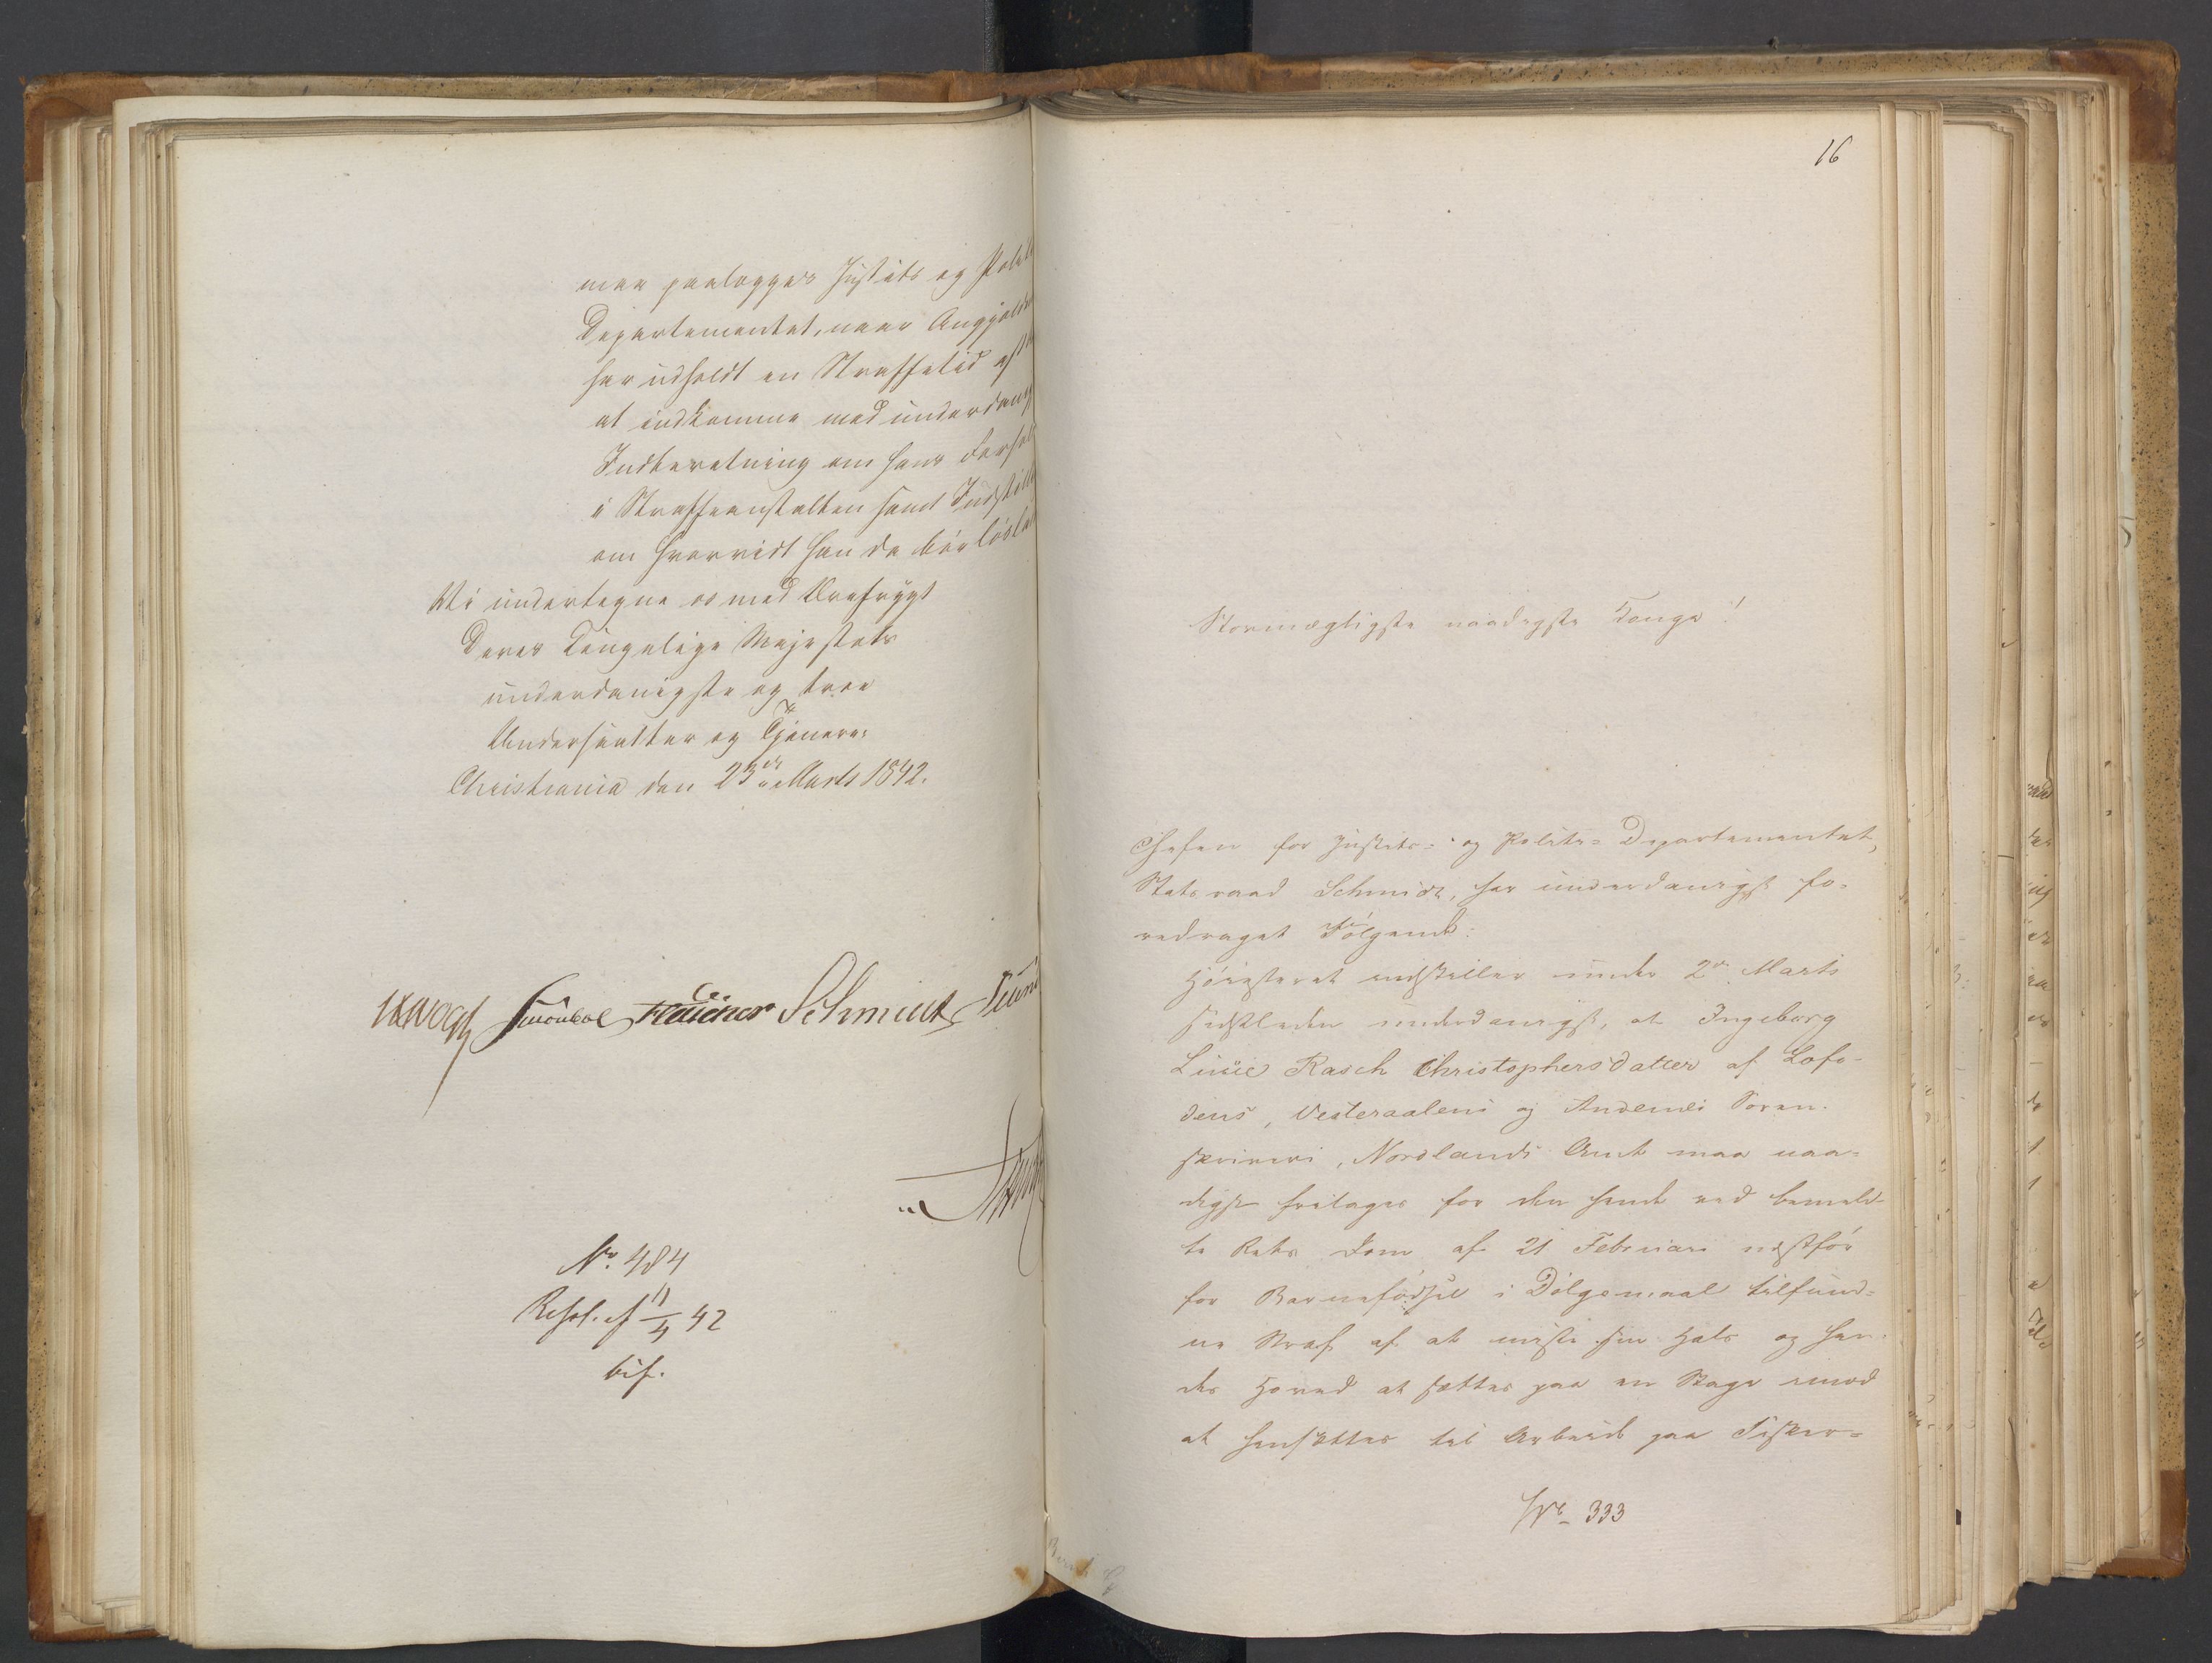 maa paalægges Justits og Politi
Departementet, naar Angjældende
har udholdt en Straffetid af
at indkomme med underdanig
Indberetning om hans Forhold
i Straffeanstalten samt Indstilling
om hvorvidt han da bør løslades
Vi undertegne os med Ærefrygt
Deres Kongelige Majestæts
underdanigste og troe
Undersaatter og Tjenere:
Christiania den 23de Marts 1842.
JHVogt Schmidt
No. 484
Resol. af 11/4 42
bif.
16
Stormægtigste naadigste Konge!
Chefen for Justits- og Politi-Departementet,
Statsraad Schmidt, har underdanigst fo-
redraget Følgende:
Høiesteret indstiller under 2den Marts
sidstleden underdanigst, at Ingeborg
Lisbe Rasch Christophersdatter af Lofo-
dens, Vesteraalens og Andenes Soren-
skriveri, Nordlands Amt maa naa-
digst fritages for den hende ved bemeld-
te Rets Dom af 21 Februari næstfør
for Barnefødsel i Dølgsmaal tilfund-
ne Straf af at miste sin Hals og hen-
des Hoved at sættes paa en Stage imod
at hensættes til Arbeide paa Tisker-
No 333